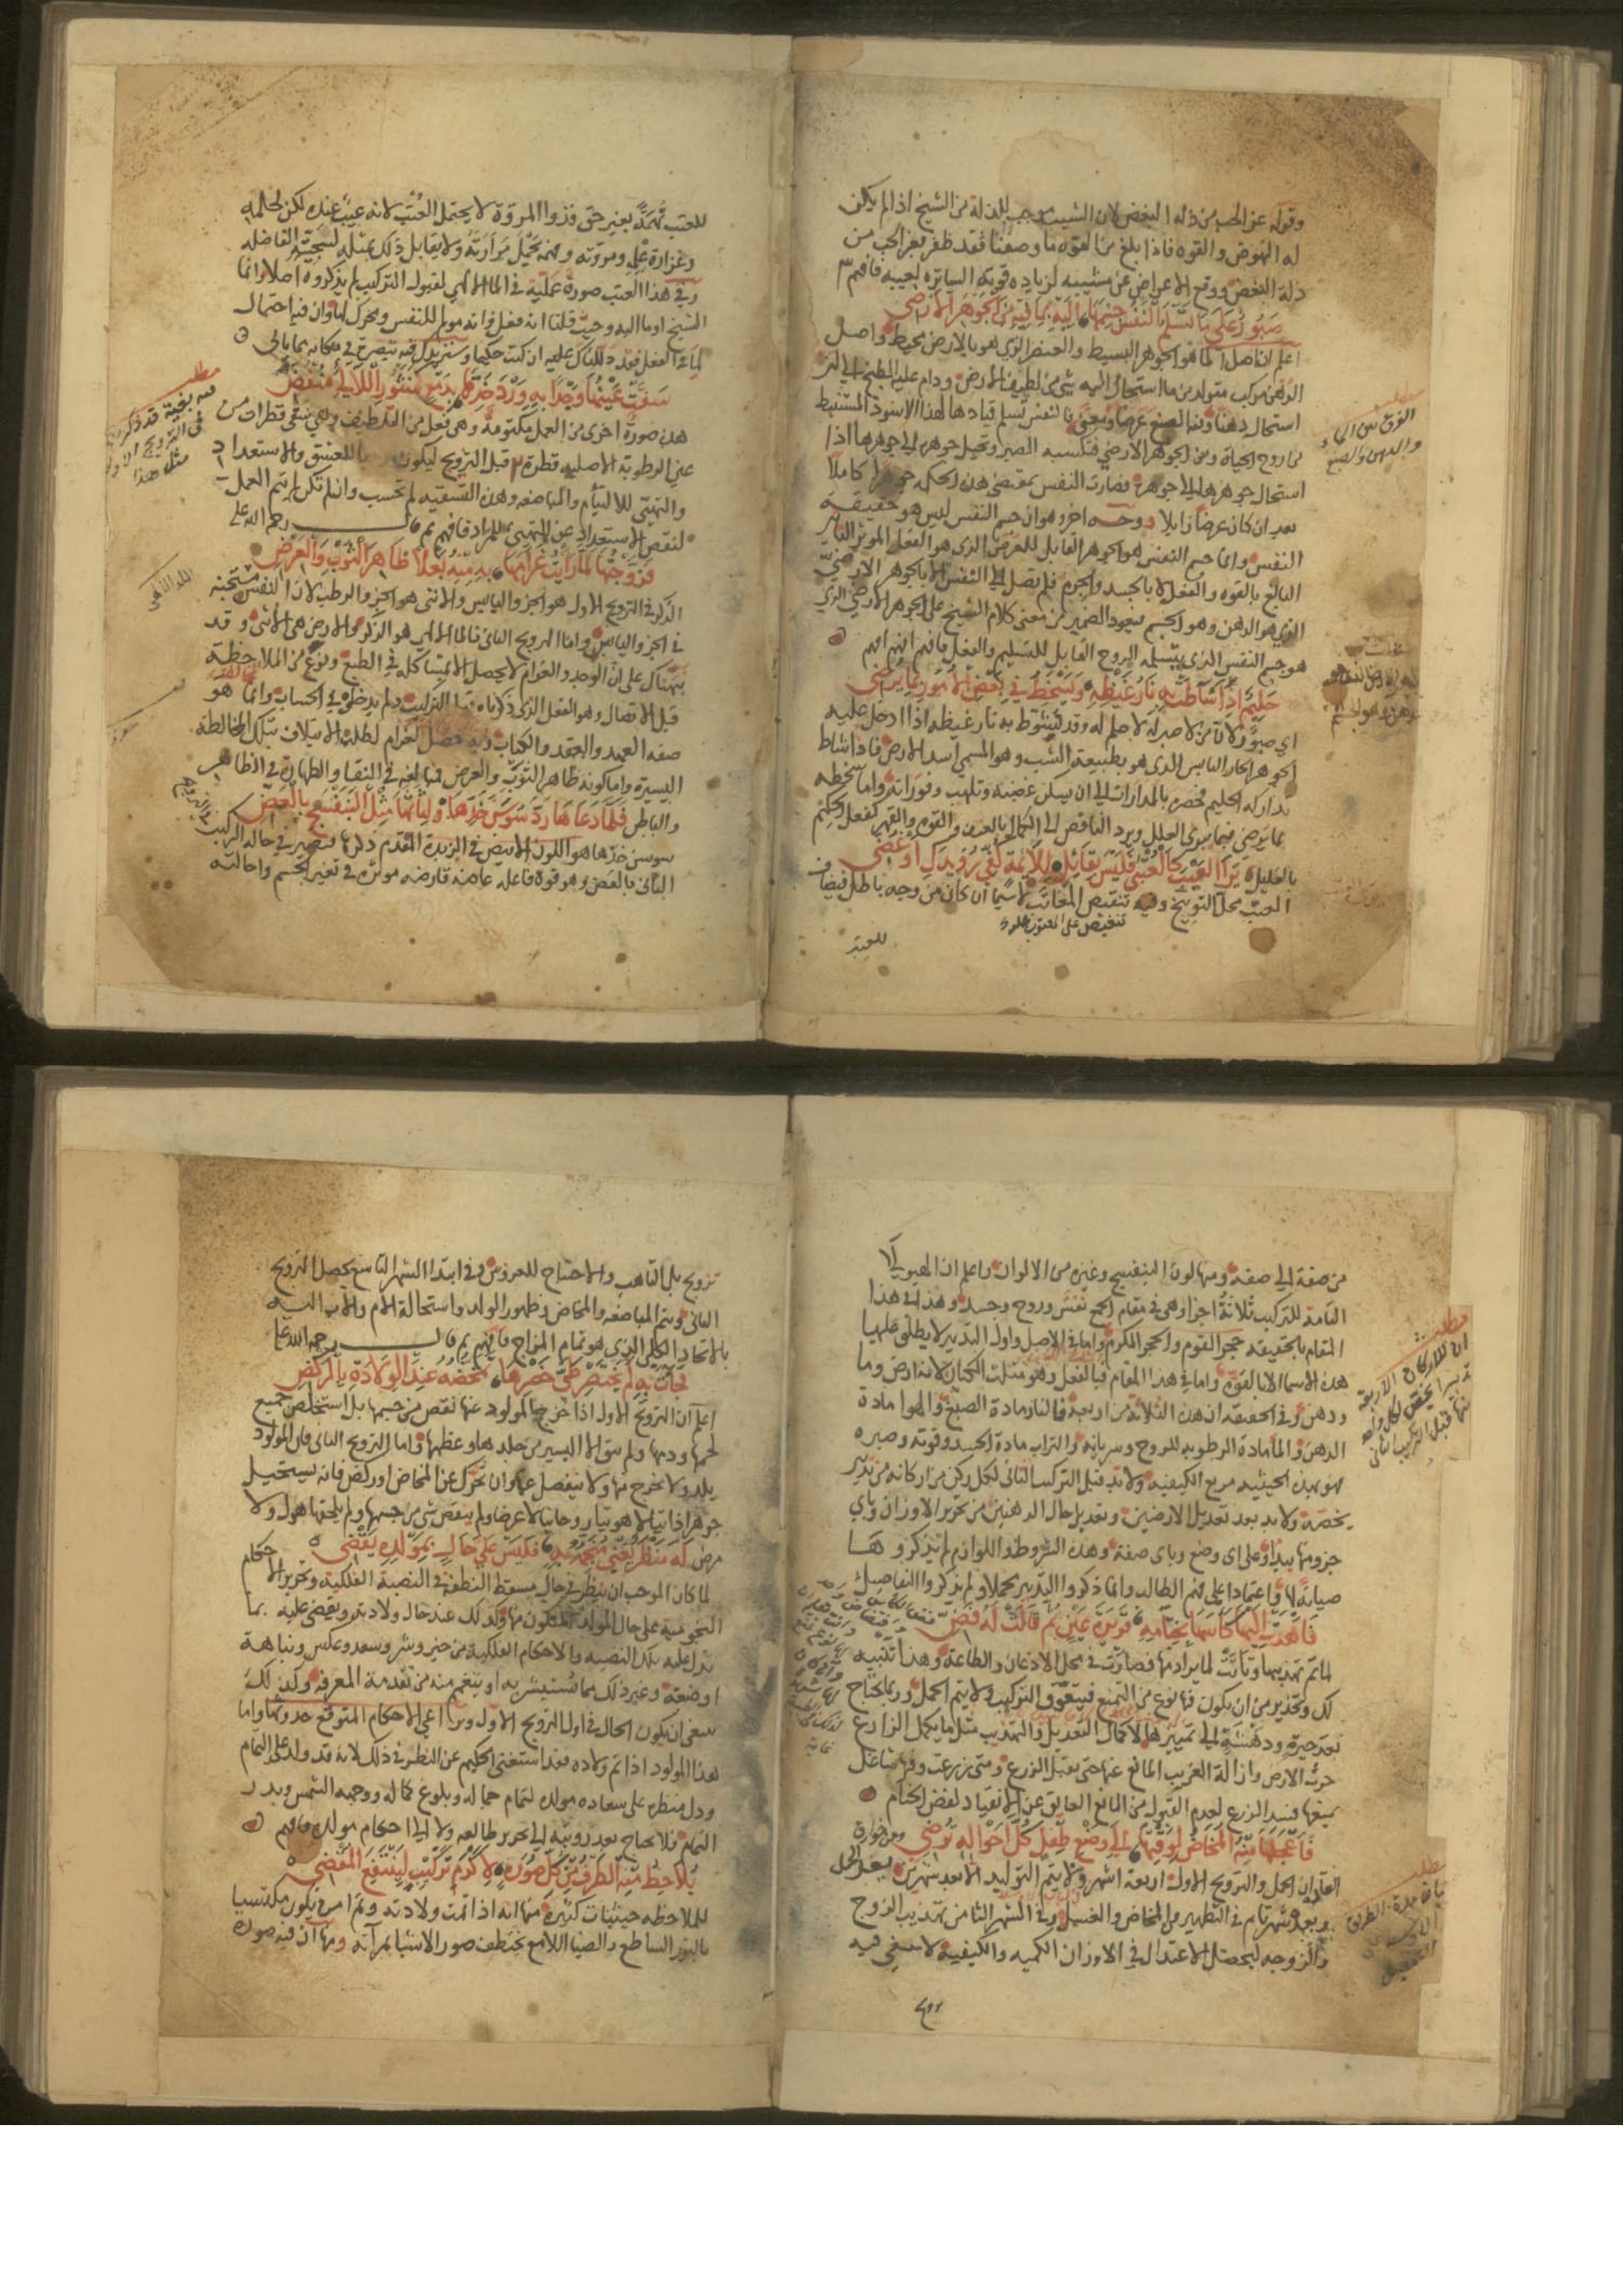 وقوله عن الحب من ذلة البغض لان الشيب موجب للذلة من الشيخ اذا لم يكن
له النهوض والقوه فاذا بلغ من القوه ما وصفنا فقد ظفر بعز الحب من
ذلة البغض ووقع الاعراض عن مشيبه لزياده قوته الساتره لعيبه فافهم
صبور على ما تسلم النفس جسمها اليه بما فيه من الجوهر الارضي
اعلم ان اصل الما هو الجوهر البسيط والعنصر الذي هو بالارض محيط واصل
الدهن مركب متولد من ما استحال اليه شي من لطيف الارض ودام عليه الطبخ الي ان
استحال دهنا وفيه الصبغ عرضا ومعنى فالنفس تسلم قيادها لهذا الاسود المستنبط
من روح الحياة ومن الجوهر الارضي فتكسبه الصبر وتحيل جوهره الي جوهرها اذا
استحال جوهرها الي جوهره فصارت النفس بمقتضى هذه الحكمه جوهرا كاملا
بعد ان كان عرضا زايلا ووجه اخر وهو ان جسم النفس ليس هو حقيقة
النفس وانما جسم النفس هو الجوهر القابل للعرض الذي هو الفعل الموثر التاثير
البالغ بالقوه والفعل لا بالجسد والجرم فلم تصل الي النفس الا بالجوهر الارضي
الذي هو الدهن وهو الجسم فيعود الضمير من معنى كلام الشيخ على الجوهر الارضي الذي
هو جسم النفس الذي يتسلمه الروح القابل للتسليم والفعل فافهم افهم افهم
حليم اذا شاطت به نار غيظه ويسخط في بعض الامور بما يرضي
اي صبور لان من لا صبر له لا حلم له وقد تشوط به نار غيظه اذا ادخل عليه
الجوهر الحار اليابس الذي هو بطبيعة الشب وهو المسمي اسد الارض فاذا شاط
تداركه الحليم بالمدارات الي ان يسكن غضبه وتلهب وفوراته واما سخطه
بما يرضي فيما يبري العليل ويرد الناقص الي الكمال بالعنف والقوه والقهر كفعل الحكيم
بالعليل يرا العتب كالعتبى فليس بقايل للايمة لفي رويدك او غضي
العتب محل التوبيخ وفيه تنقيص المعاتب لا سيما ان كان من وجه باطل فيضاف
تنغيص على المعتوب
للعتب
مطلب
الفرق بين الماء
والدهن والصبغ
للعتب تهمة بغير حق فذوا المروة لا يحتمل العتب لانه عيب عنده لكن لحلمه
وغزارة علمه ومروته وفهمه تحمل مرارته ولا يقابل ذلك بمثله لسجيته الفاضله
وفي هذا العتب صورة عملية في الما الالهي لقبول التركيب لم يذكروه اصلا وانما
الشيخ اوما اليه وحيث قلنا انه فعل فانه مولم للنفس ومحرك لها وان فيه احتمال
لما الفعل فقد دللناك عليه ان كنت حكيما وستزيدك فيه تصريح في مكانه بما يالي
سقت عينها وجدا به ورد خدها بدمع كمنثور اللالي منفض
هذه صورة اخرى من العمل مكتومة وهي فعل من التلطيف وهي تنقى قطرات من
عين الرطوبة الاصليه قطرة قبل التزويج ليكون للعشق والاستعداد
والتهيي للالتيام والمباضعه وهذه التسقيه لم تحسب وان لم تكن لم يتم العمل
لنقص الاستعداد عن التهيي للمراد فافهم ثم قال رحمه الله على
فزوجها لما رات غرامها به منه بعلا ظاهر الثوب والعرض
الذكر في التزويج الاول هو الجزو اليابس والانثى هو الجزو الرطب لان النفس مستجنه
في الجزو اليابس واما التزويج الثاني فالما الالهي هو الذكر والارض هي الانثى وقد
نبهناك على ان الوجد والغرام لا يحصل الا بمشاكله في الطبع ونوع من الملاحظة
قبل الاتصال وهو الفعل الذي ذكرناه قبل التركيب ولم يدخل في الحساب وانما هو
صفه العهد والعقد والكتاب وفيه فضل الغرام لطلب الايتلاف بتلك المخالطة
اليسيرة واما كونه ظاهر الثوب والعرض فمبالغه في النقا والطهارة في الظاهر
والباطن فلما دعاها رد سوسن خدها ولثاتها مثل البنفسج بالعض
سوسن خدها هو اللون الابيض في الزبدة المقدم ذكرها فتصير في حاله التركيب
الثاني بالعض وهو قوة فاعله عاضه قارضه موثره في تغير الجسم واحالته
مطلب
فيه بغية قد ذكر
في التزويج الاول
مثل هذا
الما الالهي
من صفة الي صفه ومنها لون البنفسج وغيره من الالوان واعلم ان الهيولا
التامة للتركيب ثلاثة اجزا وهي في مقام الجمع نفس وروح وجسد وهذا في هذا
المقام بالحقيقه حجر القوم والحجر المكرم واما في الاصل واول التدبير لا يطلق عليها
هذه الاسما الا بالقوة واما في هذا المقام فبالفعل وهو مثلث الكيان لانه ارض وما
ودهن وفي الحقيقه ان هذه الثلاثه من اربعه فالنار مادة الصبغ والهوا مادة
الدهن والما مادة الرطوبه للروح وسريانه والتراب مادة الجسد وقوته وصبره
فهو بهذه الحيثيه مربع الكيفيه ولا بد قبل التركيب الثاني لكل ركن من اركانه من تدبير
يخصه ولا بد بعد تعديل الارضين وتعديل حال الدهنين من تحرير الاوزان وباي
جزو منها يبدا وعلى اي وضع وباي صفة وهذه الشروط واللوازم لم يذكروها
صيانة لها واعتمادا على فهم الطالب وانما ذكروا التدبير مجملا ولم يذكروا التفاصيل
فاهدت اليها كاسها بختامه قريرة عين ثم قالت له فض
لما تم تهذيبها وتاتت لما يراد منها فصارت في محل الاذعان والطاعة وهذا تنبيه
لك وتحذير من ان يكون فيه نوع من التمنع فيتعوق التركيب ولا يتم الحمل وربما يحتاج
بعد حيرة ودهشة الي تمييزها لاكمال التعديل والتهذيب مثل ما يكمل الزارع
حرث الارض وازالة الغريب المانع عنها حتى يقبل الزرع ومتى زرعت وفيها شاغل
يمنعها فسد الزرع لعدم القبول من المانع العايق عن الانقياد لفض الختام
فاعجلها منه المخاض لوقتها الي وضع طفل كل احواله ترضي
العقد ان الحمل والتزويج الاول اربعة اشهر ولا يتم التوليد الا بعد شهرين بعد الحمل
وبعده شهر تام في التطهير من المخاض والغسيل وفي الشهر الثامن تهذيب الزوج
والزوجه ليحصل الاعتدال في الاوزان الكميه والكيفية لا سعى فيه
مطلب
ان للاركان الاربعة
تدبيرا يخص لكل واحد
منها قبل التركيب الثاني
تزويج بل التاهب والاحتياج للعروش وفي ابتدا الشهر التاسع يحصل التزويج
الثاني ويتم المباضعه والمخاض وظهور الولد واستحالة الام والاب اليه
بالاتحاد الكلي الذي هو تمام المزاج فافهم ثم قال رحمه الله على
فجات به لم ينتقص طي خصرها تمخضه عند الولادة بالركض
اعلم ان التزويج الاول اذا خرج المولود عنها نقص من جسمها بل استخلص جميع
لحمها ودمها ولم يبق الا اليسير من جلدها وعظمها واما التزويج الثاني فان المولود
يلد ولا يخرج منها ولا ينفصل عنها وان تحرك عن المخاض اوركض فانه يستحيل
جوهرا ذاتيا لاهوتيا روحانيا لا عرضا ولم ينقص شي من جسمها ولم يلحقها هول ولا
مرض له منظر يغني منجمه به فليس على حال بمولده يقضي
لما كان الموجب ان ينظر في حال مسقط النطفة في النصبة الفلكية وتحرير الاحكام
النجومية على حال المولد المتكون منها وكذلك عند حال ولادته ويقضى عليه بما
تدل عليه تلك النصبه والاحكام الفلكية من خير وشر وسعد وعكس ونباهة
او ضعة وغير ذلك مما تستبشر به او يتغمم منه من تقدمة المعرفه وكذلك
ينبغي ان يكون الحال في اول التزويج الاول ويراعي الاحكام المتوقع حدوثها واما
هذا المولود اذا تم ولاده فقد استغنى الحكيم عن النظر في ذلك لانه قد ولد على التمام
ودل منظره على سعاده مولده لتمام جماله وبلوغ كماله ووجهه الشمس وبدر
التمام فلا يحتاج بعد رويته الي تحرير طالعه ولا الي احكام مولده فافهم
يلاحظ منه الطرف من كل صورة لاكرم تركيب لينتفع المقضي
للملاحظه حيثيات كثيرة منها انه اذا تمت ولادته وتم امره يكون مكتسبا
بالنور الساطع والضيا اللامع تختطف صور الاشيا بمرآته ومنها ان فيه صوره